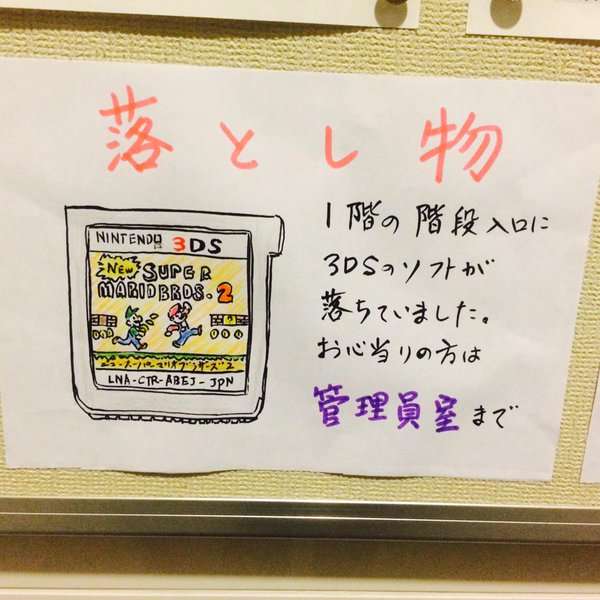 落とし物
NINTENDO 3DS
New SUPER
MARIO BROS. 2
ニュー・スーパーマリオブラザーズ 2
LNA-CTR-ABEJ-JPN
1階の階段入口に
3DSのソフトが
落ちていました。
お心当りの方は
管理員室まで